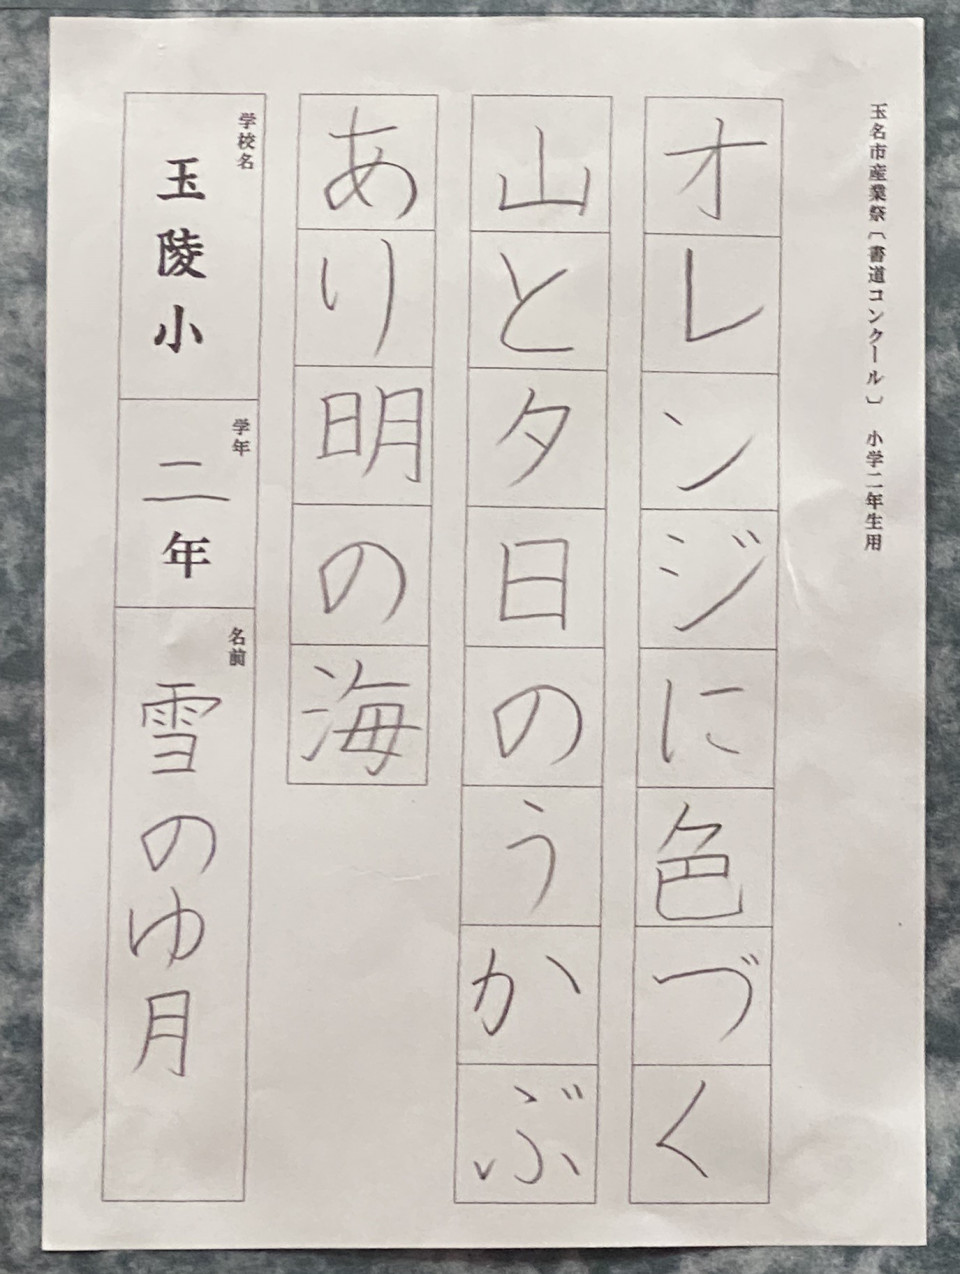 玉名市産業祭〔書道コンクール〕　小学二年生用
オレンジに色づく
山と夕日のうかぶ
あり明の海
学校名
玉陵小
学年
二年
名前
雪のゆ月